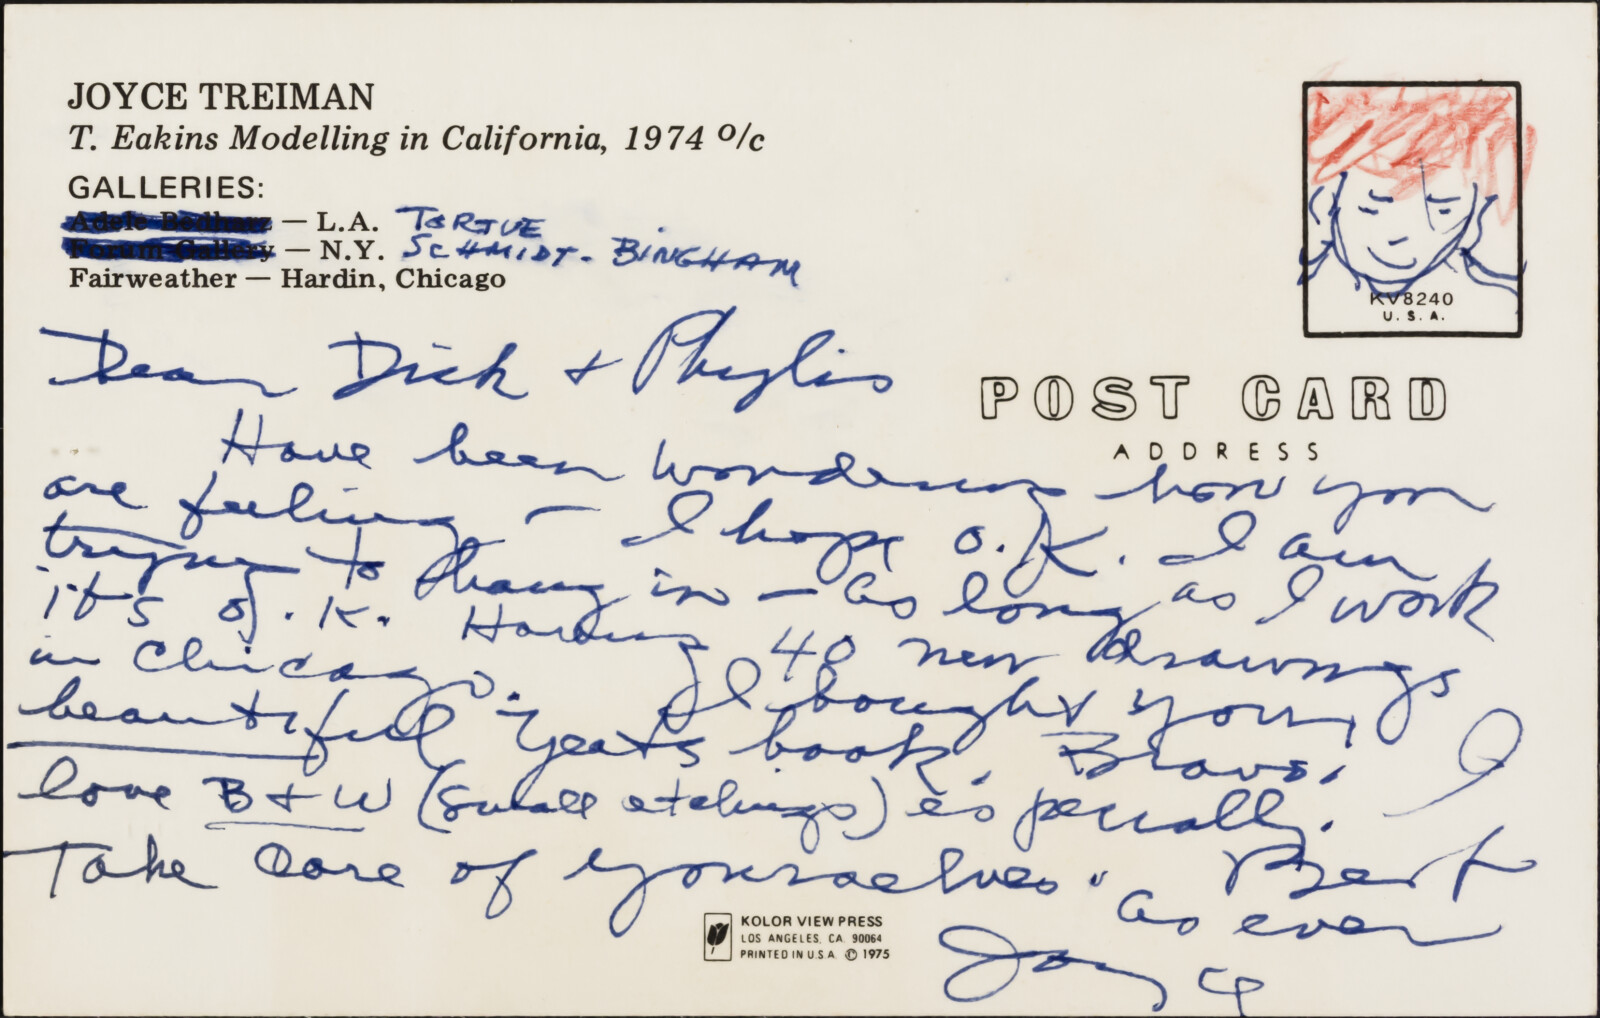 JOYCE TREIMAN
T. Eakins Modelling in California, 1974 o/c
GALLERIES:
Adele Bednarz — L.A. TORTUE
Forum Gallery — N.Y. SCHMIDT-BINGHAM
Fairweather — Hardin, Chicago
KV8240
U.S.A.
POST CARD
ADDRESS
Dear Dick + Phyllis
Have been wondering how you
are feeling — I hope O.K. I am
trying to hang in — as long as I work
it's O.K. Having 40 new drawings
in Chicago. I bought your
beautiful Yeats book. Bravo! I
love B + W (small etchings) especially.
Take care of yourselves. Best
as ever
Joyce
KOLOR VIEW PRESS
LOS ANGELES, CA. 90064
PRINTED IN U.S.A. © 1975